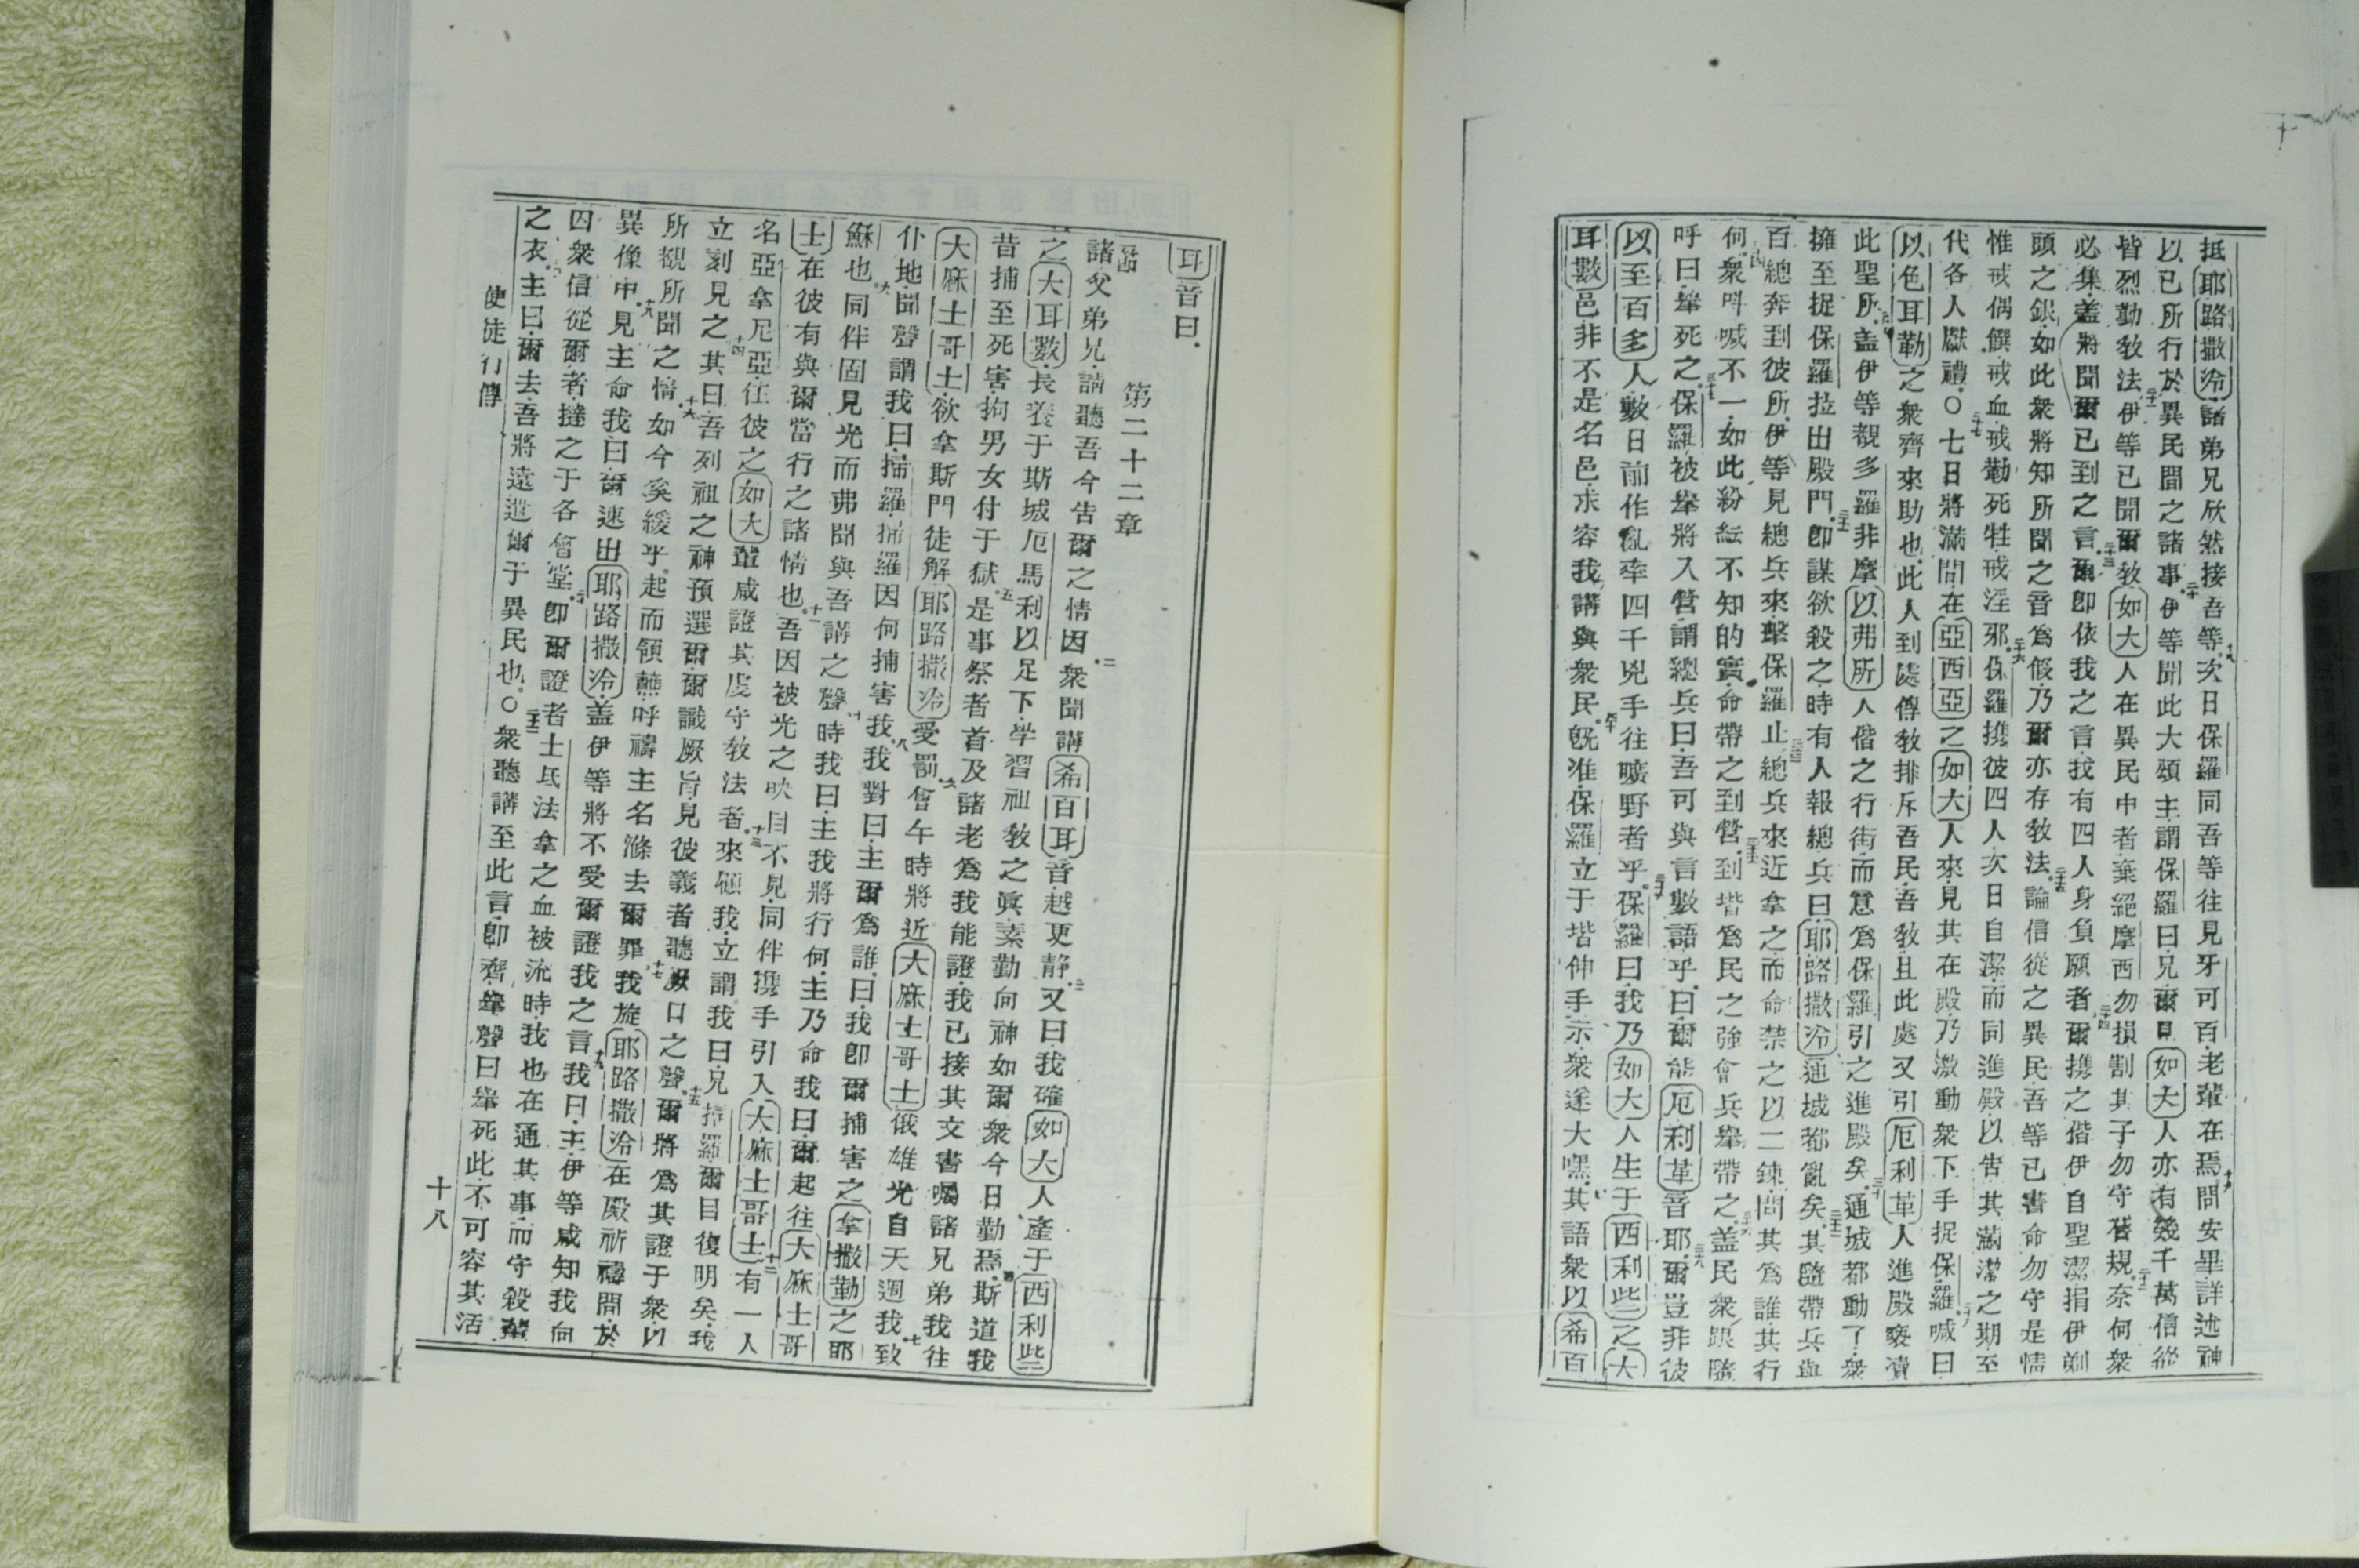 抵耶路撒冷諸弟兄欣然接吾等十八次日保羅同吾等往見牙可百老輩在焉十九問安畢詳述神
以已所行於異民間之諸事二十伊等聞此大頌主謂保羅曰兄爾見如大人亦有幾千萬信從
皆烈勤敎法二十一伊等已聞爾敎如大人在異民中者棄絕摩西勿損割其子勿守舊規二十二奈何衆
必集盖將聞爾已到之言二十三爾卽依我之言我有四人身負願者二十四爾携之偕伊自聖潔捐伊剃
頭之銀如此衆將知所聞之音爲假乃爾亦存敎法二十五論信從之異民吾等已書命勿守是情
惟戒偶饌戒血戒勒死牲戒淫邪二十六保羅携彼四人次日自潔而同進殿以告其滿潔之期至
代各人獻禮〇二十七七日將滿間在亞西亞之如大人來見其在殿乃激動衆下手捉保羅二十八喊曰
以色耳勒之衆齊來助也此人到處傳敎排斥吾民吾敎且此處又引厄利革人進殿褻瀆
此聖所二十九盖伊等覩多羅非摩以弗所人偕之行街而意爲保羅引之進殿矣三十通城都動了衆
擁至捉保羅拉出殿門三十一卽謀欲殺之時有人報總兵曰耶路撒冷通城都亂矣三十二其隨帶兵與
百總奔到彼所伊等見總兵來擊保羅止三十三總兵來近拿之而命禁之以二鍊問其爲誰其行
何三十四衆呌喊不一如此紛紜不知的實命帶之到營三十五到堦爲民之強會兵舉帶之三十六盖民衆跟隨
呼曰舉死之三十七保羅被舉將入營謂總兵曰吾可與言數語乎曰爾能厄利革音耶三十八爾豈非彼
以至百多人數日前作亂率四千兇手往曠野者乎三十九保羅曰我乃如大人生于西利些之大
耳數邑非不是名邑求容我講與衆民四十旣准保羅立于堦伸手示衆遂大嘿其語衆以希百
耳音曰
第二十二章
諸父弟兄請聽吾今告爾之情因二衆聞講希百耳音越更靜三又曰我確如大人產于西利些
之大耳數長養于斯城厄馬利以足下學習祖敎之眞素勤向神如爾衆今日勤焉四斯道我
昔捕至死害拘男女付于獄五是事祭者首及諸老爲我能證我已接其文書囑諸兄弟我往
大麻士哥士欲拿斯門徒解耶路撒冷受罰六會午時將近大麻士哥士俄雄光自天週我七致
仆地聞聲謂我曰掃羅掃羅因何捕害我八我對曰主爾爲誰曰我卽爾捕害之拿撒勒之耶
穌也九同伴固見光而弗聞與吾講之聲十時我曰主我將行何主乃命我曰爾起往大麻士哥
士在彼有與爾當行之諸情也十一吾因被光之映目不見同伴携手引入大麻士哥士十二有一人
名亞拿尼亞住彼之如大輩咸證其虔守敎法者十三來顧我立謂我曰兄掃羅爾目復明矣我
立刻見之十四其曰吾列祖之神預選爾爾識厥旨見彼義者聽厥口之聲十五爾將爲其證于衆以
所覩所聞之情十六如今奚緩乎起而領蘸呼禱主名滌去爾罪十七我旋耶路撒冷在殿祈禱間於
異像中十八見主命我曰爾速出耶路撒冷盖伊等將不受爾證我之言十九我曰主伊等咸知我向
囚衆信從爾者撻之于各會堂二十卽爾證者士氐法拿之血被流時我也在通其事而守殺輩
之衣二十一主曰爾去吾將遠遣爾于異民也〇二十二衆聽講至此言卽齊舉聲曰舉死此不可容其活
使徒行傳
十八